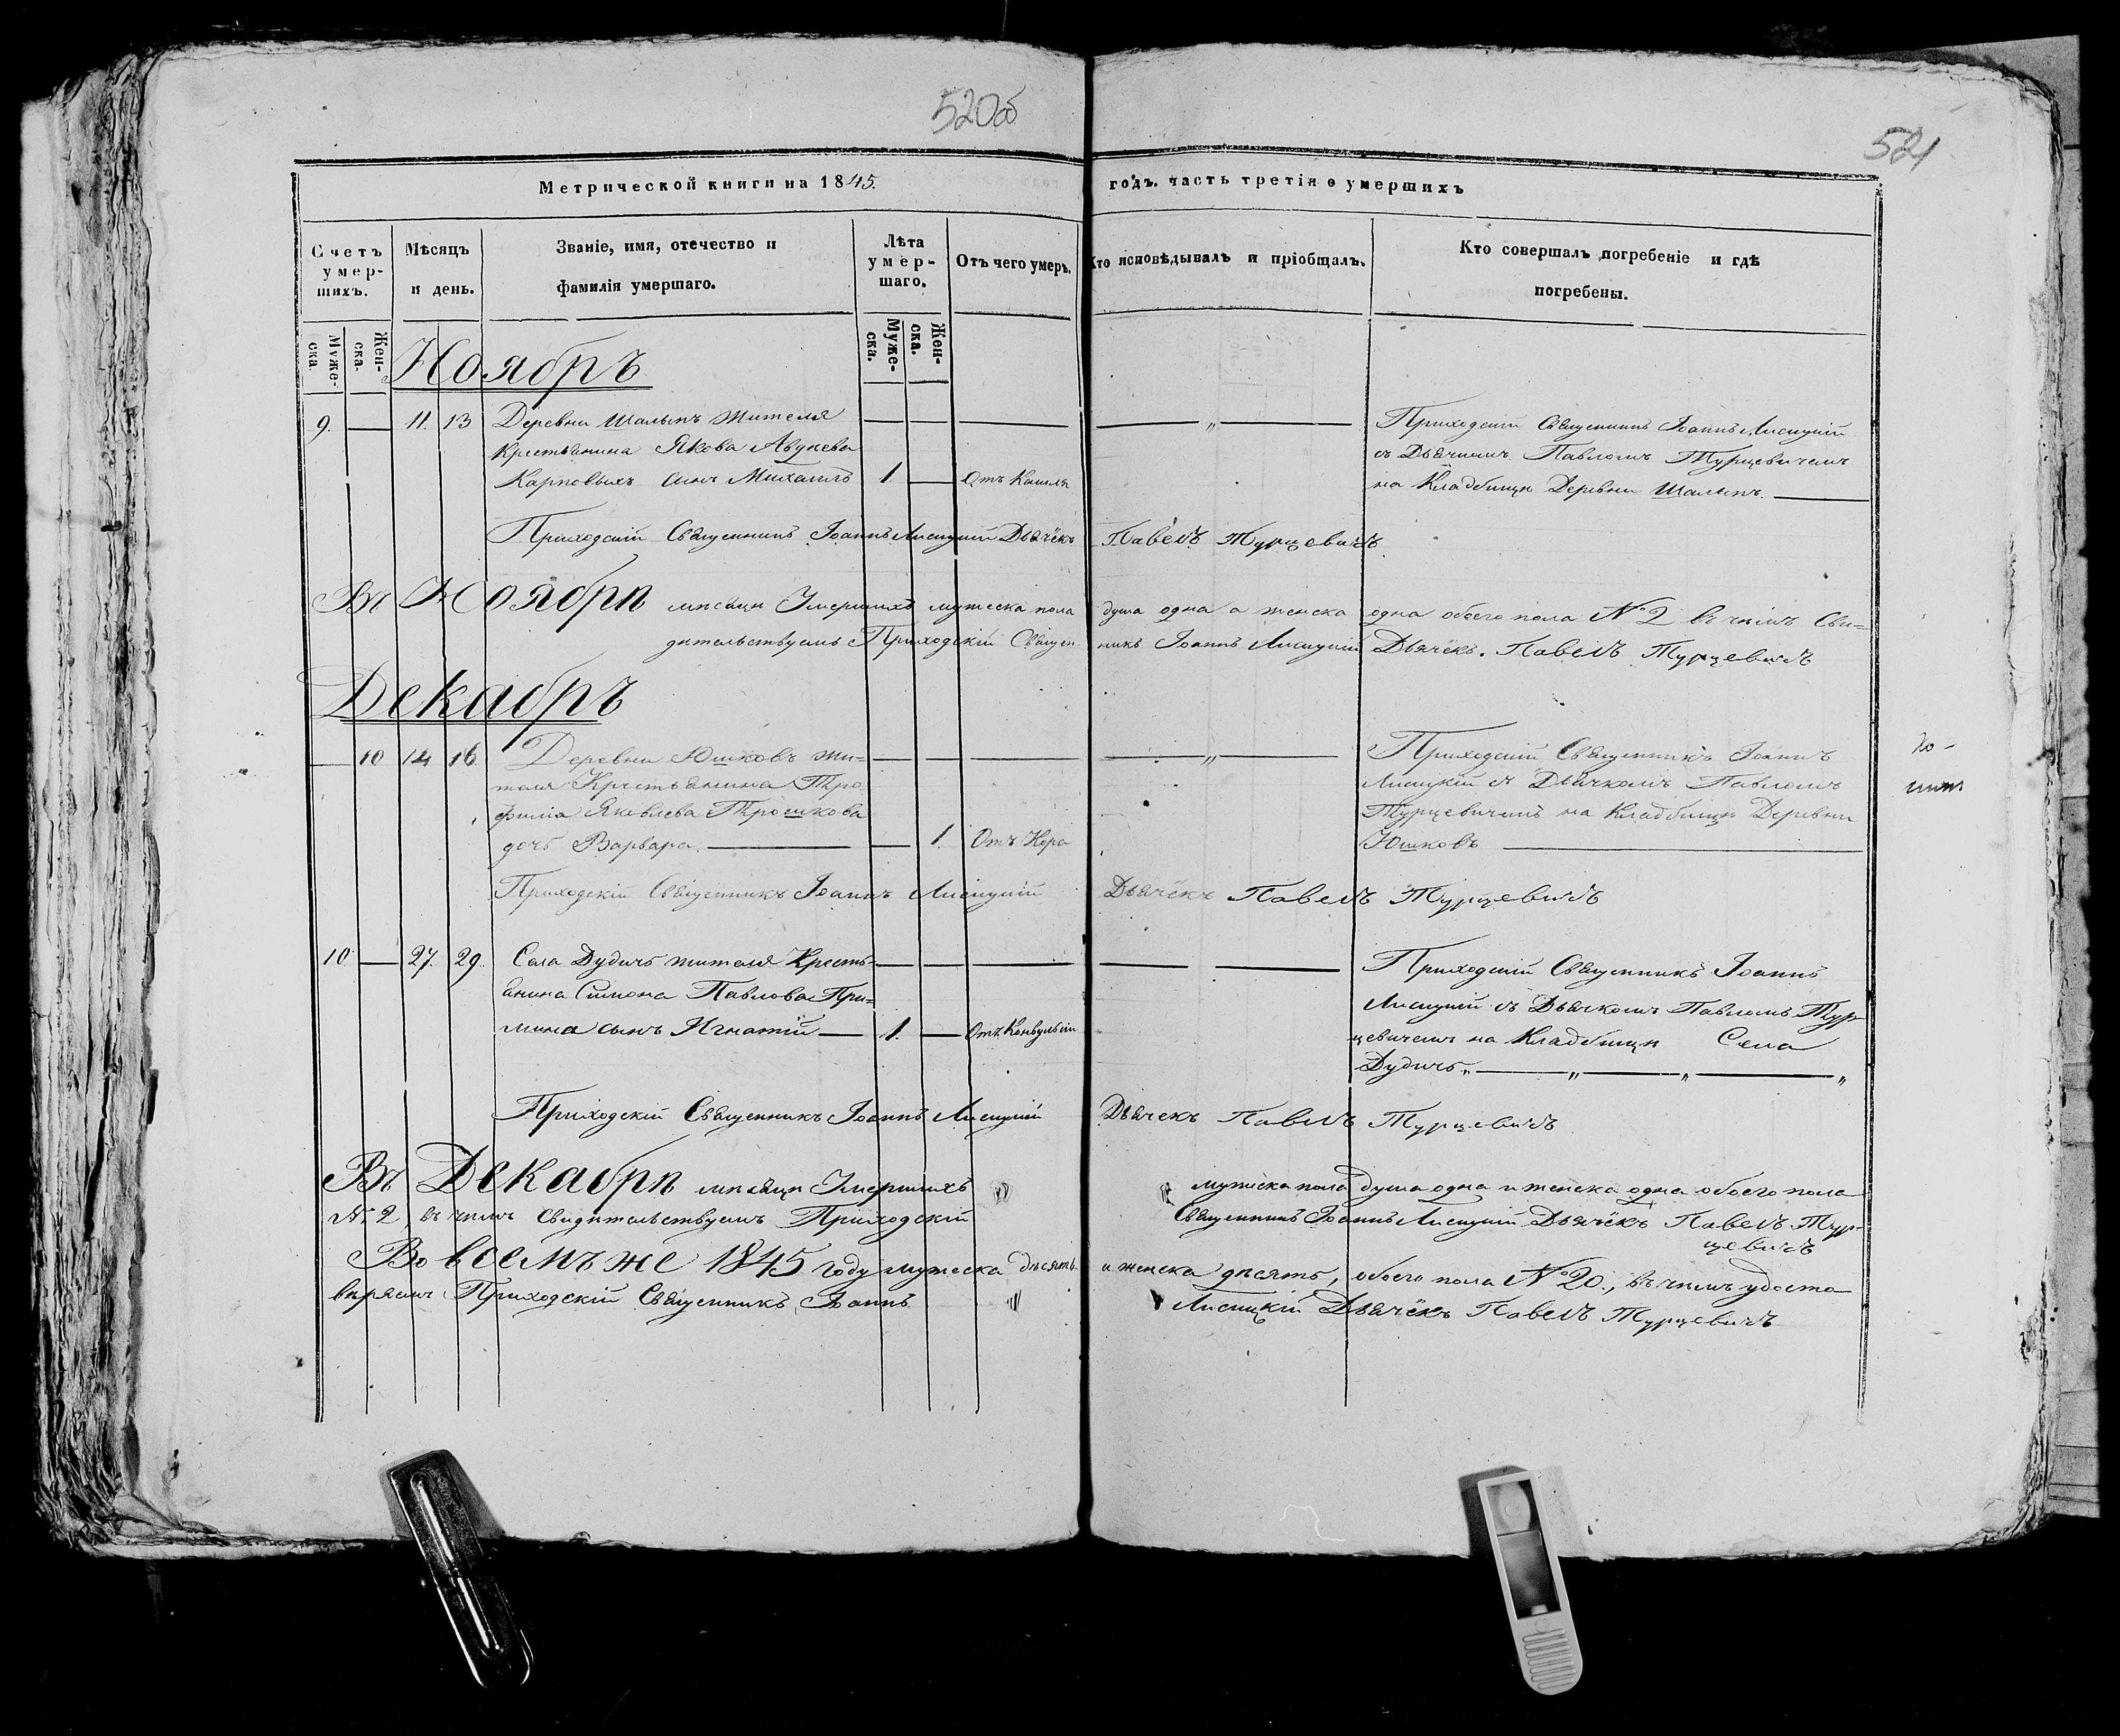 520об
521
Метрической книги на 1845. годъ. часть третія о умершихъ
Счетъ умер-шихъ.
Мѣсяцъ и день.
Званіе, имя, отечество и фамилія умершаго.
Лѣта умер-шаго.
Отъ чего умеръ.
Кто исповѣдывалъ и пріобщалъ.
Кто совершалъ погребеніе и гдѣ погребены.
Муже-ска
Жен-ска.
Муже-ска.
Жен-ска.
Ноябръ
9. — 11. 13 Деревни Шалыпъ жителя
Крестьянина Якова Авдѣева
Карповыхъ сынъ Михаилъ 1. — Отъ Кашля
Приходскій Священникъ Іоаннъ Лисицкій
съ Дьячкомъ Павломъ Турцевичемъ
на Кладбищѣ Деревни Шалыпъ.
Приходскій Священникъ Іоаннъ Лисицкій Дьячёкъ Павелъ Турцевичъ.
Въ Ноябрѣ мѣсяцѣ Умершихъ мужеска пола душа одна а женска одна обоего пола № 2 въ чемъ Сви=
дительствуемъ Приходскій Священ никъ Іоаннъ Лисицкій Дьячёкъ. Павелъ Турцевичъ
Декабръ
— 10 14 16 Деревни Юшковъ жи=
теля Крестьянина Тро
фима Яковлева Трошкова
дочь Варвара. — 1. Отъ Кора
Приходскій Священникъ Іоаннъ
Лисицкій съ Дьячкомъ Павломъ
Турцевичемъ на Кладбищѣ Деревни
Юшковъ
Приходскій Священникъ Іоаннъ Лисицкій Дьячёкъ Павелъ Турцевичъ
10 — 27. 29. Села Дудичъ жителя Кресть=
янина Симона Павлова При=
мина сынъ Игнатій — 1. — Отъ Конвульсіи
Приходскій Священникъ Іоаннъ
Лисицкій съ Дьячкомъ Павломъ Тур
цевичемъ на Кладбищѣ Села
Дудичъ
Приходскій Священникъ Іоаннъ Лисицкій Дьячекъ Павелъ Турцевичъ
Въ Декабрѣ мѣсяцѣ Умершихъ мужеска пола душа одна и женска одна обоего пола
№ 2, въ чемъ свидительствуемъ Приходскій Священникъ Іоаннъ Лисицкій Дьячёкъ Павелъ Тур-
цевичъ
Во всемъ же 1845 году мужеска десять и женска десять, обоего пола № 20., въ чемъ удосто
вѣряемъ Приходскій Священникъ Іоаннъ Лисицкій Дьячёкъ Павелъ Турцевичъ